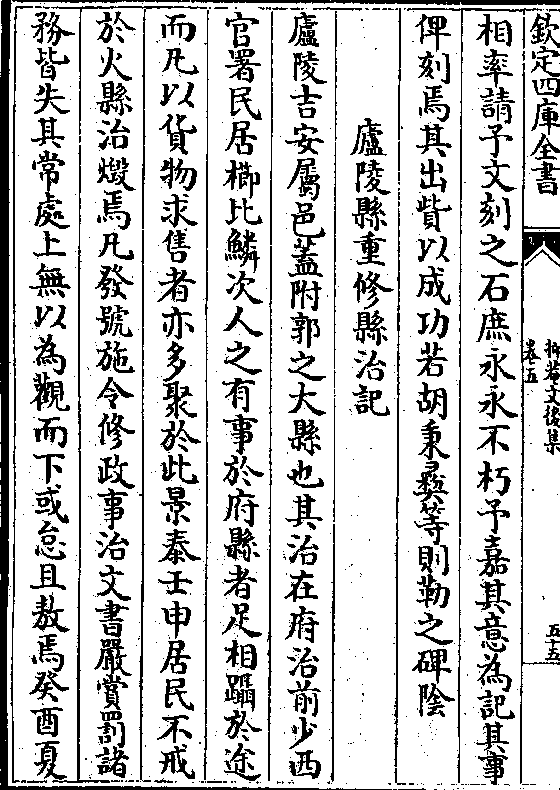 欽定四庫全書
卷五
五十五
相率請予文刻之石庶永永不朽予嘉其意為記其事
俾刻焉其出貲以成功若胡秉彝等則勒之碑陰
廬陵縣重修縣治記
廬陵吉安屬邑蓋附郭之大縣也其治在府治前少西
官署民居櫛比鱗次人之有事於府縣者足相躡於途
而凡以貨物求售者亦多聚於此景泰壬申居民不戒
於火縣治燬焉凡發號施令修政事治文書嚴賞罰諸
務皆失其常處上無以為觀而下或怠且敖焉癸酉夏